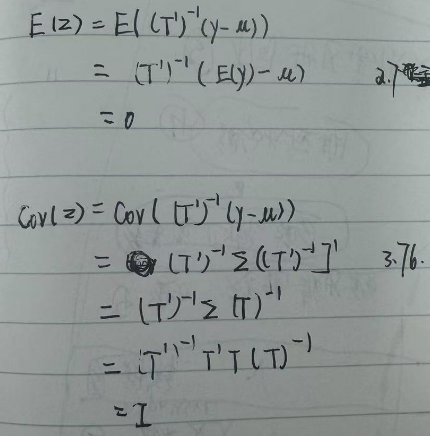 E(z) = E((T')⁻¹(y-μ))
= (T')⁻¹(E(y)-μ) 2.7
= 0
Cov(z) = Cov((T')⁻¹(y-μ))
= (T')⁻¹Σ((T')⁻¹]' 3.76.
= (T')⁻¹Σ(T)⁻¹
= (T')⁻¹T'T(T)⁻¹
= I